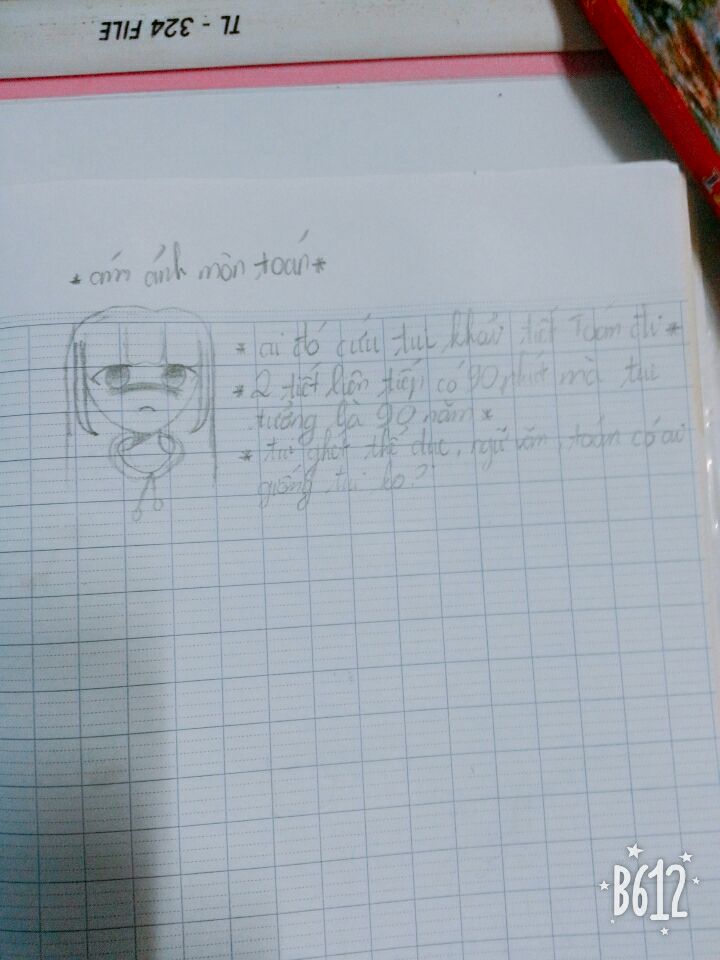 TL - 324 FILE
* ám ảnh môn toán *
* ai đó cứu tui khỏi tiết Toán đi *
* 2 tiết liên tiếp có 90 phút mà tui
tưởng là 90 năm *
* tui ghét thể dục, ngữ văn, toán có ai
giống tui ko?
B612